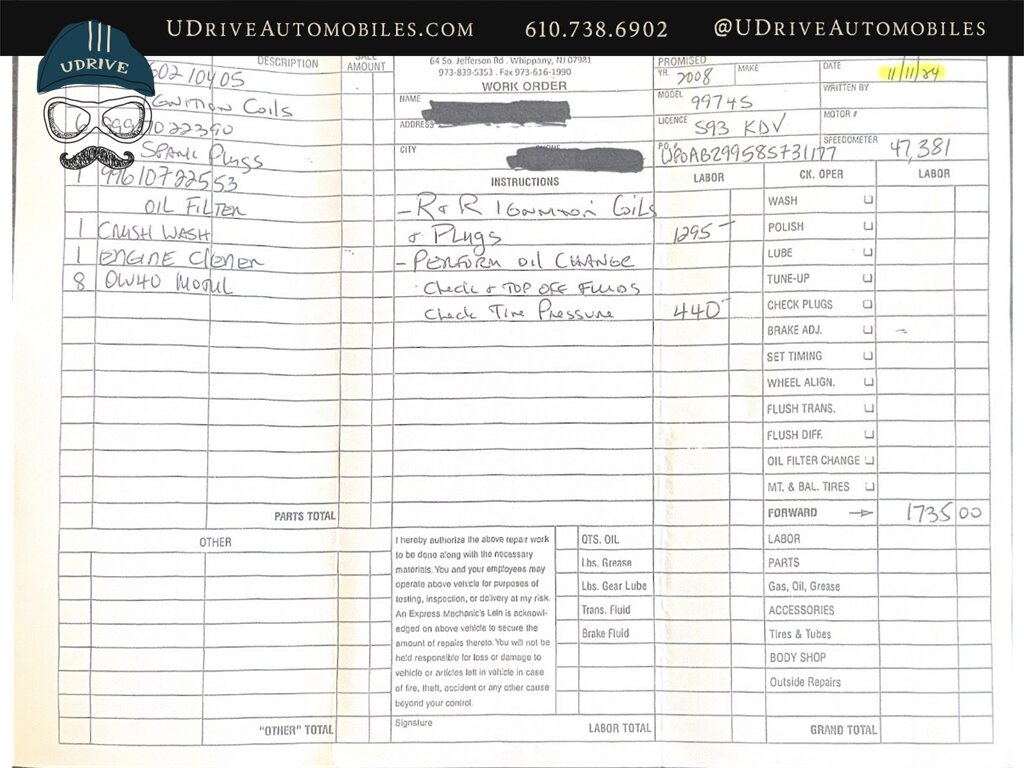 UDRIVEAUTOMOBILES.COM 610.738.6902 @UDRIVEAUTOMOBILES
UDRIVE
DESCRIPTION SALE AMOUNT
64 So. Jefferson Rd. Whippany, NJ 07981
973-839-5353 . Fax 973-616-1990
WORK ORDER
PROMISED
YR. 2008 MAKE DATE 11/11/24
MODEL 997 4S WRITTEN BY
NAME
ADDRESS
LICENCE S93 KDV MOTOR #
CITY PHONE
WP0AB299585731177 SPEEDOMETER 47,381
60210405
IGNITION COILS
022390
SPARK PLUGS
1 99610722553
OIL FILTER
1 CRUSH WASH
1 ENGINE CLENER
8 0W40 MOTUL
PARTS TOTAL
INSTRUCTIONS LABOR CK. OPER LABOR
- R & R IGNITION COILS
& PLUGS 1295-
- PERFORM OIL CHANGE
· CHECK & TOP OFF FLUIDS
CHECK TIRE PRESSURE 440-
WASH
POLISH
LUBE
TUNE-UP
CHECK PLUGS
BRAKE ADJ.
SET TIMING
WHEEL ALIGN.
FLUSH TRANS.
FLUSH DIFF.
OIL FILTER CHANGE
MT. & BAL. TIRES
FORWARD → 1735 00
OTHER
"OTHER" TOTAL
I hereby authorize the above repair work
to be done along with the necessary
materials. You and your employees may
operate above vehicle for purposes of
testing, inspection, or delivery at my risk.
An Express Mechanic's Lein is acknowl-
edged on above vehicle to secure the
amount of repairs thereto. You will not be
held responsible for loss or damage to
vehicle or articles left in vehicle in case
of fire, theft, accident or any other cause
beyond your control.
Signature
QTS. OIL
Lbs. Grease
Lbs. Gear Lube
Trans. Fluid
Brake Fluid
LABOR TOTAL
LABOR
PARTS
Gas, Oil, Grease
ACCESSORIES
Tires & Tubes
BODY SHOP
Outside Repairs
GRAND TOTAL